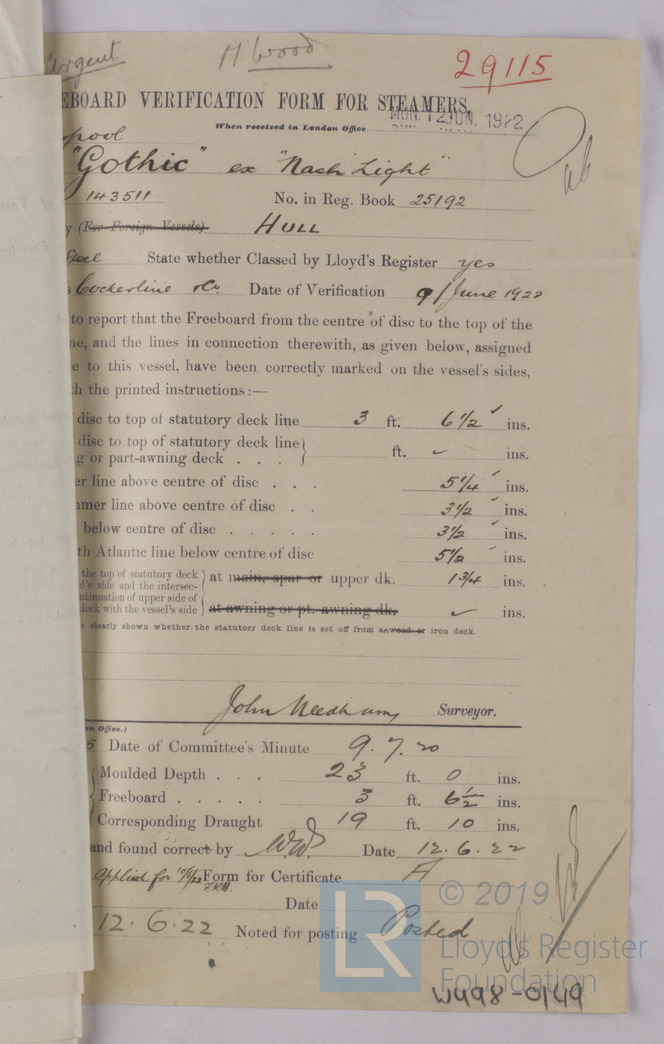 urgent H. Wood 29115
EBOARD VERIFICATION FORM FOR STEAMERS.
When received in London Office MON. 12 JUN. 1922
pool
"Gothic" ex "Nash Light"
143511 No. in Reg. Book 25192
y (For Foreign Vessels) HULL
Steel State whether Classed by Lloyd's Register yes
Cockerline & Co. Date of Verification 9/June 1922
to report that the Freeboard from the centre of disc to the top of the
ne, and the lines in connection therewith, as given below, assigned
e to this vessel, have been correctly marked on the vessel's sides,
h the printed instructions:—
disc to top of statutory deck line 3 ft. 6 1/2 ins.
disc to top of statutory deck line
g or part-awning deck . . . ft. ins.
er line above centre of disc . . . 5 1/4 ins.
mer line above centre of disc . . 3 1/2 ins.
below centre of disc . . . . . 3 1/2 ins.
th Atlantic line below centre of disc 5 1/2 ins.
the top of statutory deck
el's side and the intersec- at main, spar or upper dk. 1 3/4 ins.
ntinuation of upper side of
deck with the vessel's side at awning or pt. awning dk. ins.
e clearly shown whether the statutory deck line is set off from a wood or iron deck.
John Needham Surveyor.
on Office.)
5 Date of Committee's Minute 9.7.20
Moulded Depth . . . 23 ft. 0 ins.
Freeboard . . . . . 3 ft. 6 1/2 ins.
Corresponding Draught 19 ft. 10 ins.
and found correct by WW Date 12.6.22
applied for Form for Certificate A
Date
12.6.22 Noted for posting Posted
© 2019
LR
Lloyd's Register
Foundation
W498-0149